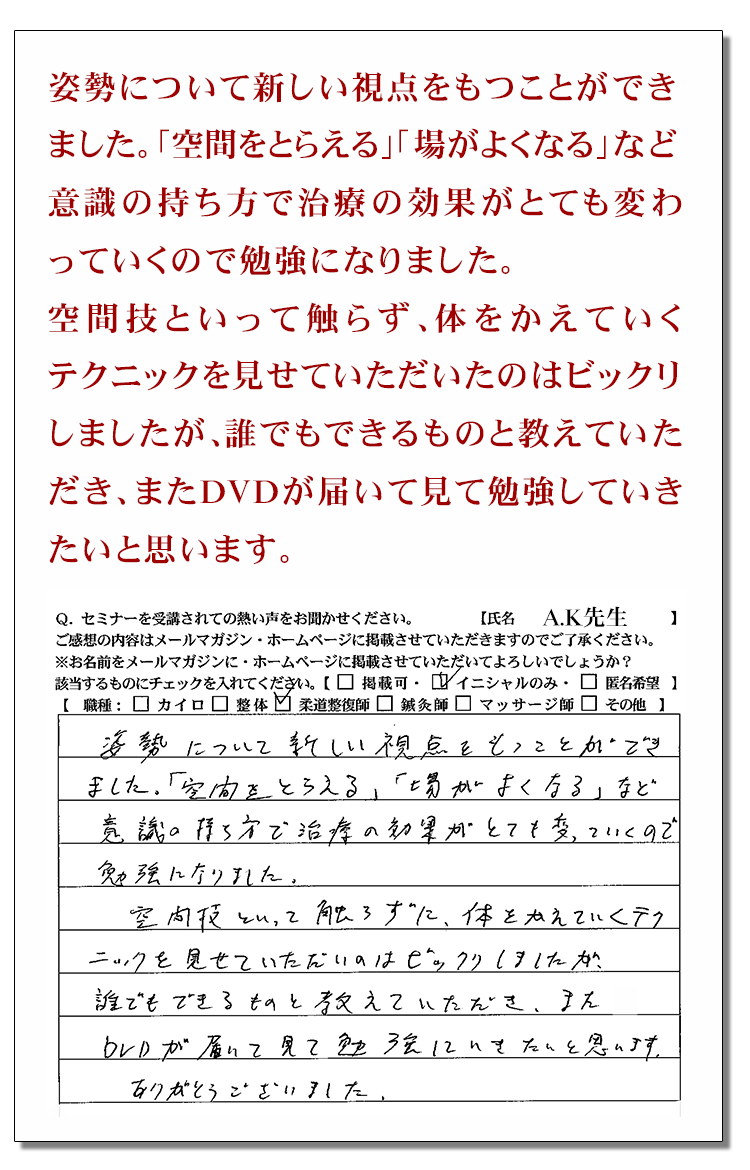 姿勢について新しい視点をもつことができ
ました。「空間をとらえる」「場がよくなる」など
意識の持ち方で治療の効果がとても変わ
っていくので勉強になりました。
空間技といって触らず、体をかえていく
テクニックを見せていただいたのはビックリ
しましたが、誰でもできるものと教えていた
だき、またDVDが届いて見て勉強していき
たいと思います。
Q. セミナーを受講されての熱い声をお聞かせください。 【氏名 A.K先生 】
ご感想の内容はメールマガジン・ホームページに掲載させていただきますのでご了承ください。
※お名前をメールマガジンに・ホームページに掲載させていただいてよろしいでしょうか?
該当するものにチェックを入れてください。【 □ 掲載可・ ☑ イニシャルのみ・ □ 匿名希望 】
【 職種: □ カイロ □ 整体 ☑ 柔道整復師 □ 鍼灸師 □ マッサージ師 □ その他 】
姿勢について新しい視点をもつことができ
ました。「空間をとらえる」「場がよくなる」など
意識の持ち方で治療の効果がとても変っていくので
勉強になりました。
空間技といって触らずに、体をかえていくテク
ニックを見せていただいのはビックリしましたが、
誰でもできるものと教えていただき、また
DVDが届いて見て勉強していきたいと思います。
ありがとうございました。